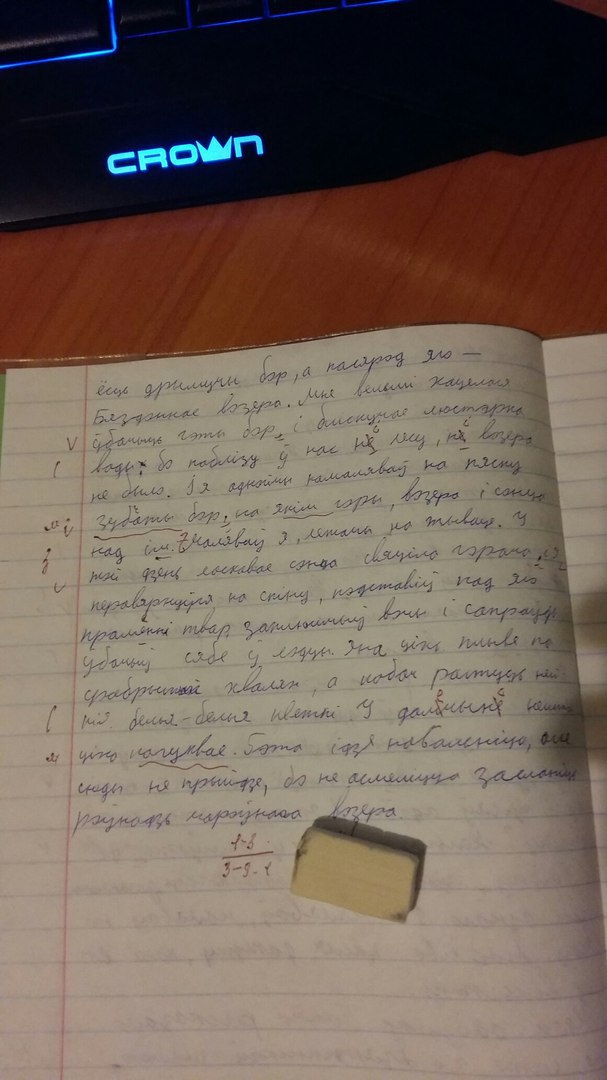 CROWN
ёсць дрымучы бор, а пасярод яго —
Бяздоннае возера. Мне вельмі хацелася
ўбачыць гэты бор, і бліскучае люстэрка
вады, бо паблізу ў нас не лесу, не возера
не было. І я аднойчы намаляваў на пяску
зубаты бор, на якім горы, возера і сонца
над ім. Маляваў я, лежачы на жываце. У
той дзень ласкавае сонца свяціла горача, і я
перавярнуўся на спіну, падставіў пад яго
прамянні твар, заплюшчыў вочы і сапраўды
ўбачыў сябе ў лодцы. Яна ціха плыве па
срабрыстай хвалях, а побач растуць ней-
кія белыя-белыя кветкі. У далечыне нешта
ціха пагуквае. Гэта ідзе навальніца, але
сюды не прыйдзе, бо не асмеліцца засланіць
чароўнага возера.
1-3
3-9-1